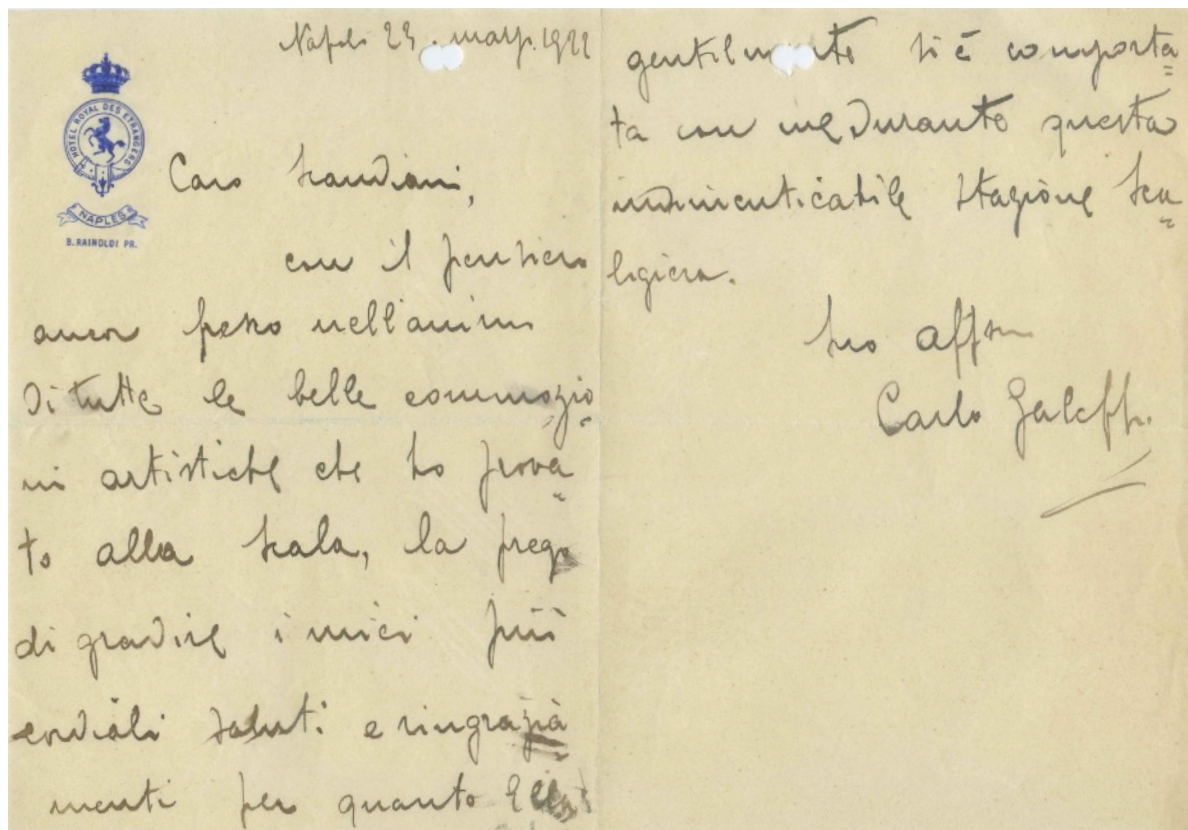 HOTEL ROYAL DES ETRANGERS
NAPLES
B. RAINOLDI PR.
Napoli 23 marz. 1922
Caro Scandiani,
con il pensiero
ancor fisso nell'animo
di tutte le belle commozio
ni artistiche che ho prova
to alla Scala, la prego
di gradire i miei più
cordiali saluti e ringrazia
menti per quanto Ella
gentilmente si è comporta
ta con me durante questa
indimenticabile stagione Sca
ligera.
Suo aff.mo
Carlo Galeffi.